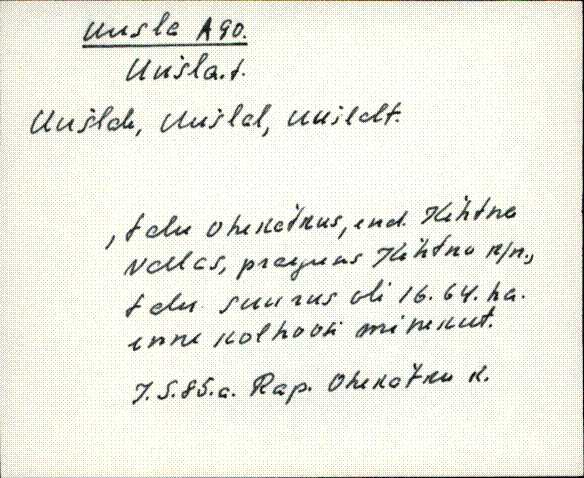 Uusla A90.
Uusla.t.
Uuslale, Uuslal, Uuslalt.
, talu Ohekatkus, end. Kehtna
Vallas, praegus Kehtna k/n.,
talu suurus oli 16.64. ha.
enne kolhoosi minekut.
7.5.85.a. Rap. Ohekatku k.